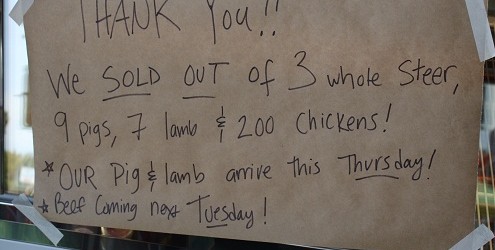 THANK You!!
We SOLD OUT of 3 whole Steer,
9 pigs, 7 lamb & 200 Chickens!
* OUR Pig & lamb arrive this Thursday!
* Beef Coming next Tuesday!